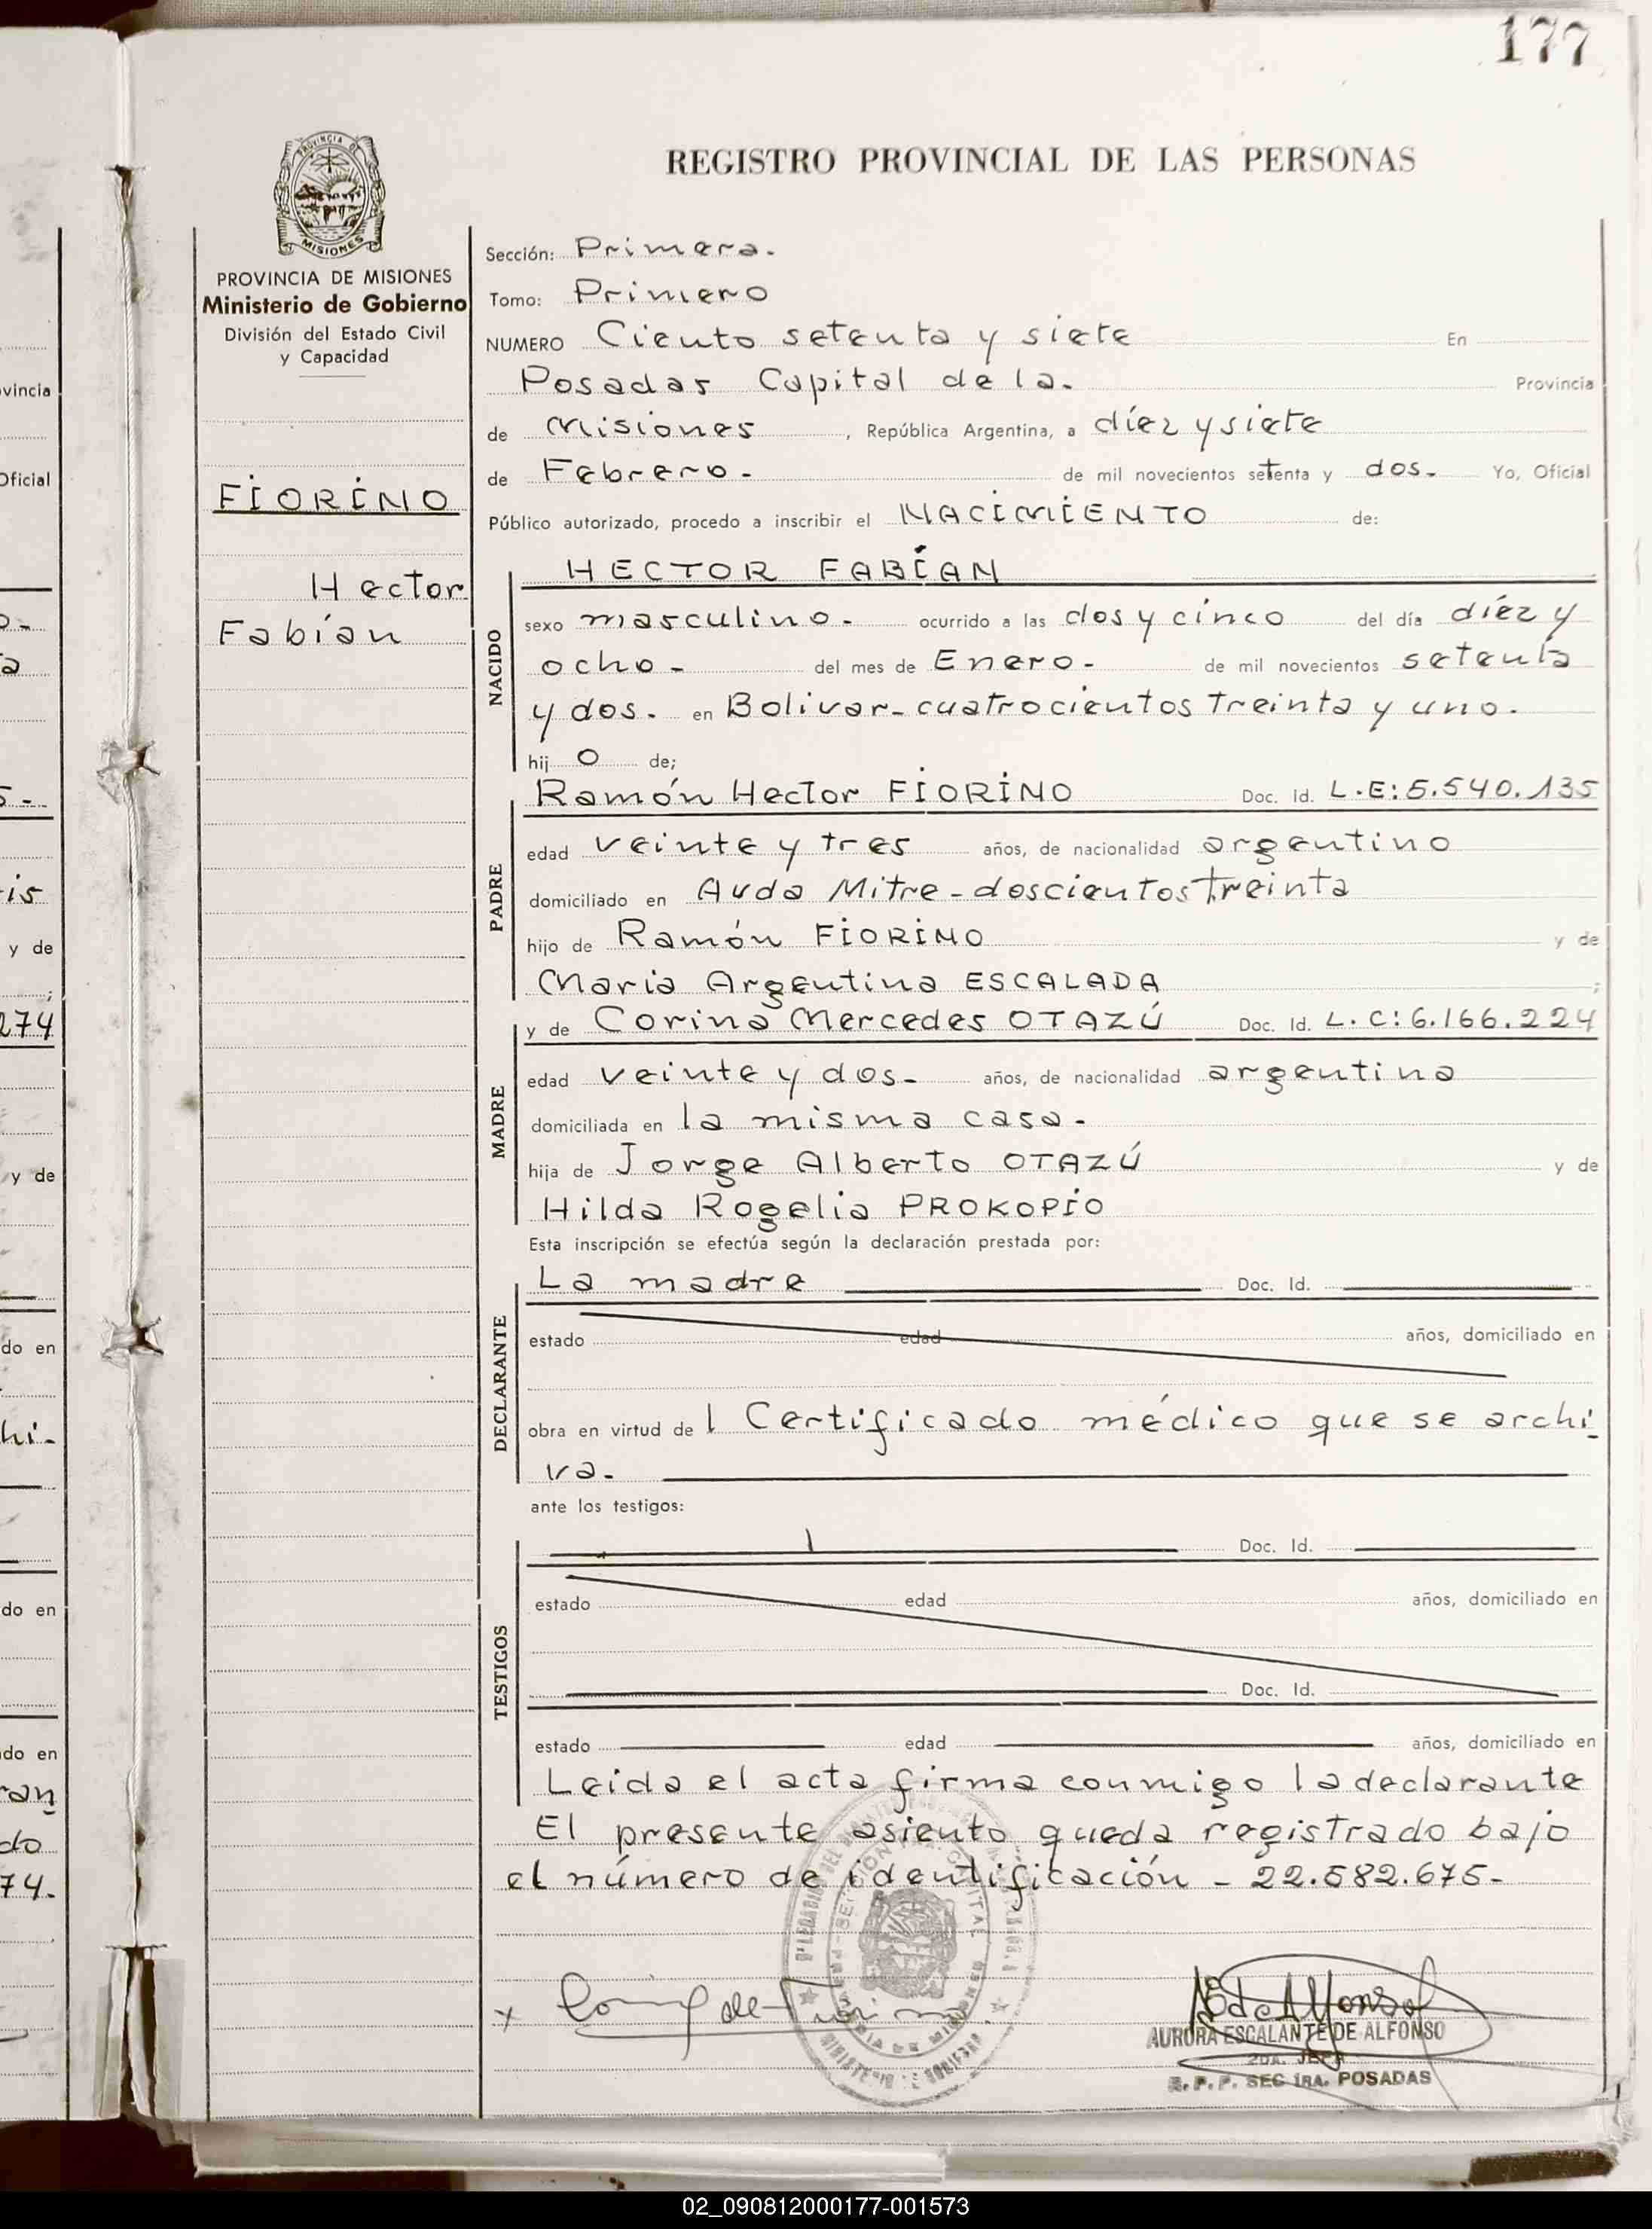 177
PROVINCIA DE
MISIONES
REGISTRO PROVINCIAL DE LAS PERSONAS
PROVINCIA DE MISIONES
Ministerio de Gobierno
División del Estado Civil
y Capacidad
FIORINO
Hector
Fabían
Sección: Primera.
Tomo: Primero
NUMERO Ciento setenta y siete En
Posadas Capital de la. Provincia
de Misiones, República Argentina, a díez y siete
de Febrero. de mil novecientos setenta y dos. Yo, Oficial
Público autorizado, procedo a inscribir el NACIMIENTO de:
NACIDO
HECTOR FABÍAN
sexo masculino. ocurrido a las dos y cinco del día díez y
ocho - del mes de Enero. de mil novecientos setenta
y dos. en Bolivar - cuatrocientos treinta y uno.
hij o de;
PADRE
Ramón Hector FIORINO Doc. Id. L.E: 5.540.135
edad veinte y tres años, de nacionalidad argentino
domiciliado en Avda Mitre - doscientos treinta
hijo de Ramón FIORINO y de
Maria Argentina ESCALADA ;
MADRE
y de Corina Mercedes OTAZÚ Doc. Id. L.C: 6.166.224
edad veinte y dos. años, de nacionalidad argentina
domiciliada en la misma casa.
hija de Jorge Alberto OTAZÚ y de
Hilda Rogelia PROKOPIO
Esta inscripción se efectúa según la declaración prestada por:
DECLARANTE
La madre Doc. Id.
estado edad años, domiciliado en
obra en virtud de l Certificado médico que se archi-
va.
ante los testigos:
TESTIGOS
Doc. Id.
estado edad años, domiciliado en
Doc. Id.
estado edad años, domiciliado en
Leida el acta firma conmigo la declarante
El presente asiento queda registrado bajo
el número de identificación - 22.582.675-
x
AURORA ESCALANTE DE ALFONSO
2DA. JEFA
R.P.P. SEC 1RA. POSADAS
vincia
Oficial
is
y de
274
y de
do en
hi-
do en
do en
ran
do
74.
02_090812000177-001573